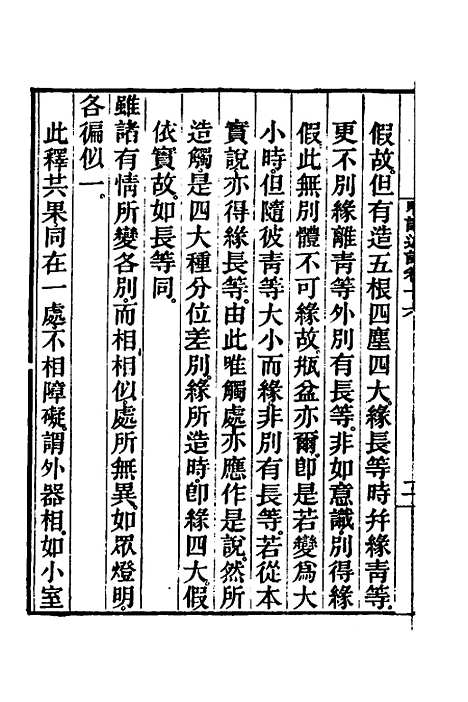 假故。但有造五根四塵四大。緣長等時幷緣靑等。
更不別緣離靑等外別有長等。非如意識別得緣
假。此無別體不可緣故。瓶盆亦爾。卽是若變爲大
小時。但隨彼靑等大小而緣。非別有長等。若從本
實說亦得緣長等。由此唯觸處亦應作是說。然所
造觸。是四大種分位差別。緣所造時。卽緣四大。假
依實故。如長等同。
雖諸有情所變各別。而相相似。處所無異。如眾燈明。
各徧似一。
此釋共果同在一處。不相障礙。謂外器相。如小室